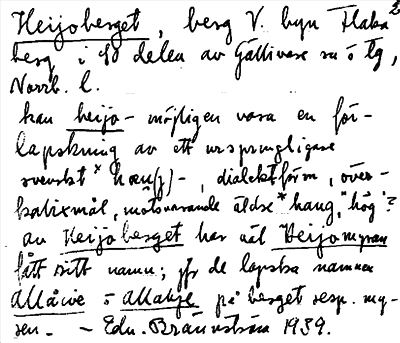 Heijoberget, berg V. byn Flaka
berg i SO delen av Gällivare sn o lg,
Norrb. l.
kan heijo- möjligen vara en för-
lapskning av ett ursprungligare
svenskt *hæu(j)-, dialektform, över-
kalixmål, motsvarande äldre *haug, "hög"?
av Heijoberget har väl Heijomyran
fått sitt namn; jfr de lapska namnen
allåive o allahje på berget resp. my-
ren. - Edv. Brännström 1939.